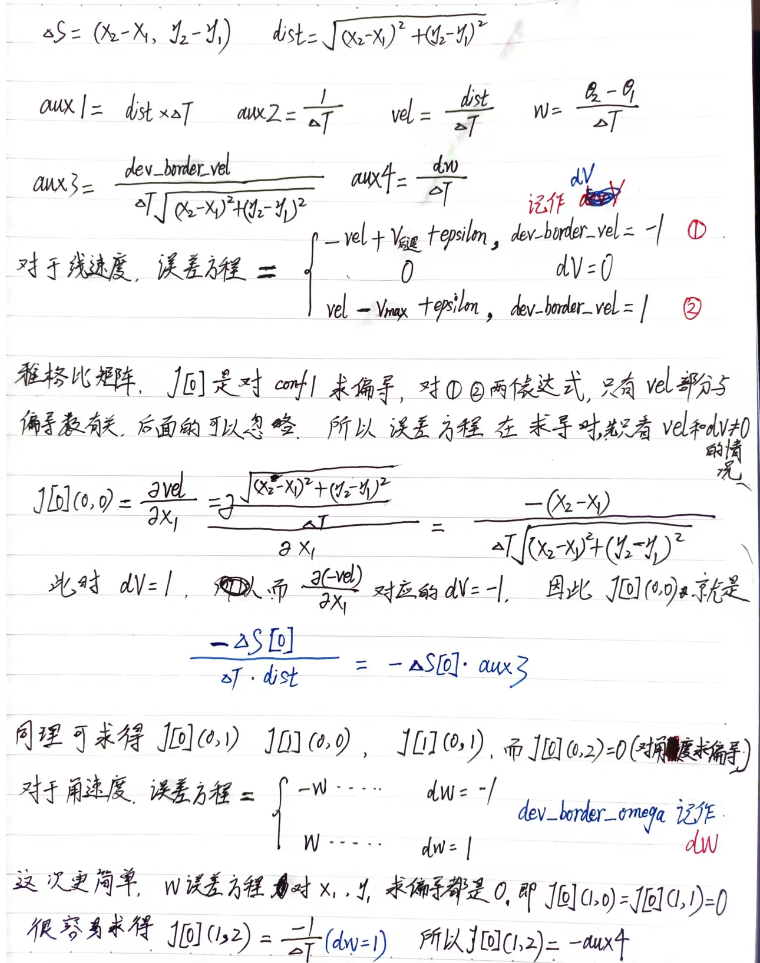 ΔS = (x₂-x₁, y₂-y₁)   dist = √((x₂-x₁)² + (y₂-y₁)²)
aux1 = dist × ΔT   aux2 = 1/ΔT   vel = dist/ΔT   w = (θ₂-θ₁)/ΔT
aux3 = dev_border_vel / (ΔT√((x₂-x₁)²+(y₂-y₁)²))   aux4 = dw/ΔT
记作 dV
对于线速度, 误差方程 = {
-vel + V后退 + epsilon, dev_border_vel = -1 ①
0   dV = 0
vel - Vmax + epsilon, dev_border_vel = 1 ②
雅格比矩阵, J[0] 是对 conf1 求偏导, 对①②两个表达式, 只有 vel 部分与
偏导数有关, 后面的可以忽略. 所以 误差方程 在 求导时, 就只看 vel 和 dV≠0
的情况
J[0](0,0) = ∂vel/∂x₁ = ∂(√((x₂-x₁)²+(y₂-y₁)²)/ΔT)/∂x₁ = -(x₂-x₁)/(ΔT√((x₂-x₁)²+(y₂-y₁)²))
此时 dV=1, 而 ∂(-vel)/∂x₁ 对应的 dV=-1, 因此 J[0](0,0) 就是
-ΔS[0]/(ΔT·dist) = -ΔS[0]·aux3
同理可求得 J[0](0,1) J[1](0,0), J[1](0,1), 而 J[0](0,2)=0 (对角度求偏导)
对于角速度, 误差方程 = {
-w ·····   dw = -1
w ·····   dw = 1
dev_border_omega 记作
dw
这次更简单, w误差方程 对 x₁, y₁ 求偏导都是 0, 即 J[0](1,0)=J[0](1,1)=0
很容易求得 J[0](1,2) = -1/ΔT (dw=1)   所以 J[0](1,2) = -aux4